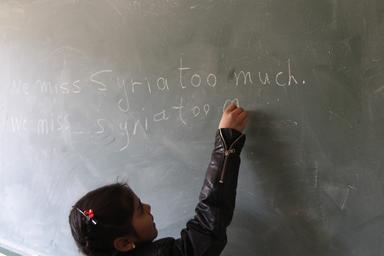 we miss Syria too much.
we miss syria too